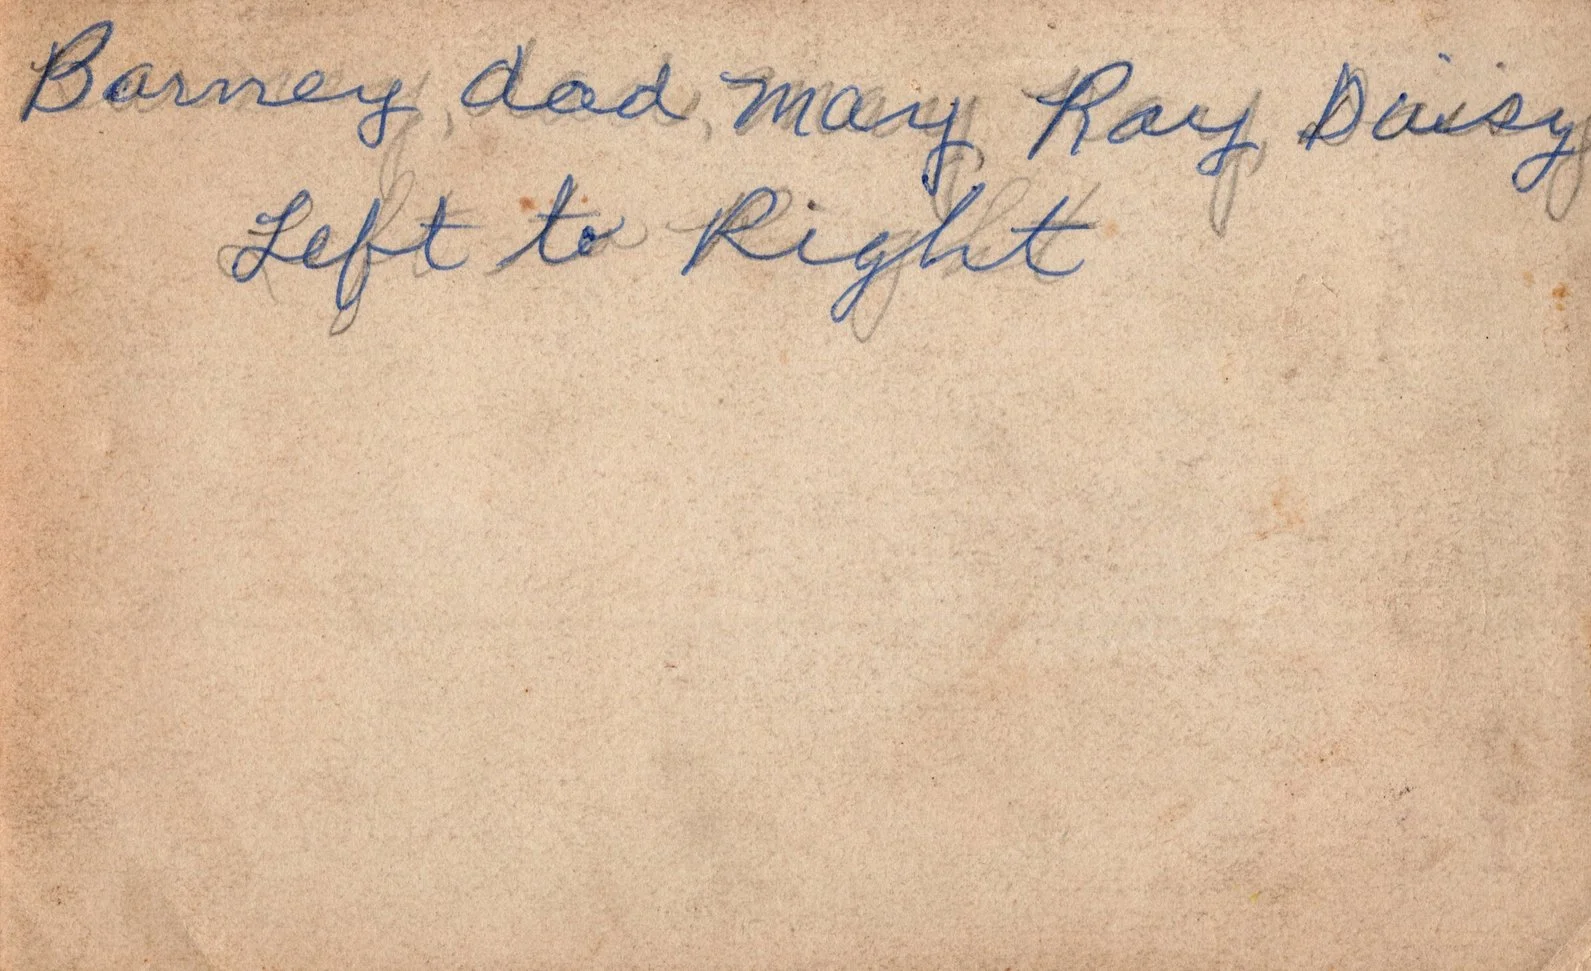 Barney, dad, Mary, Ray, Daisy
Left to Right